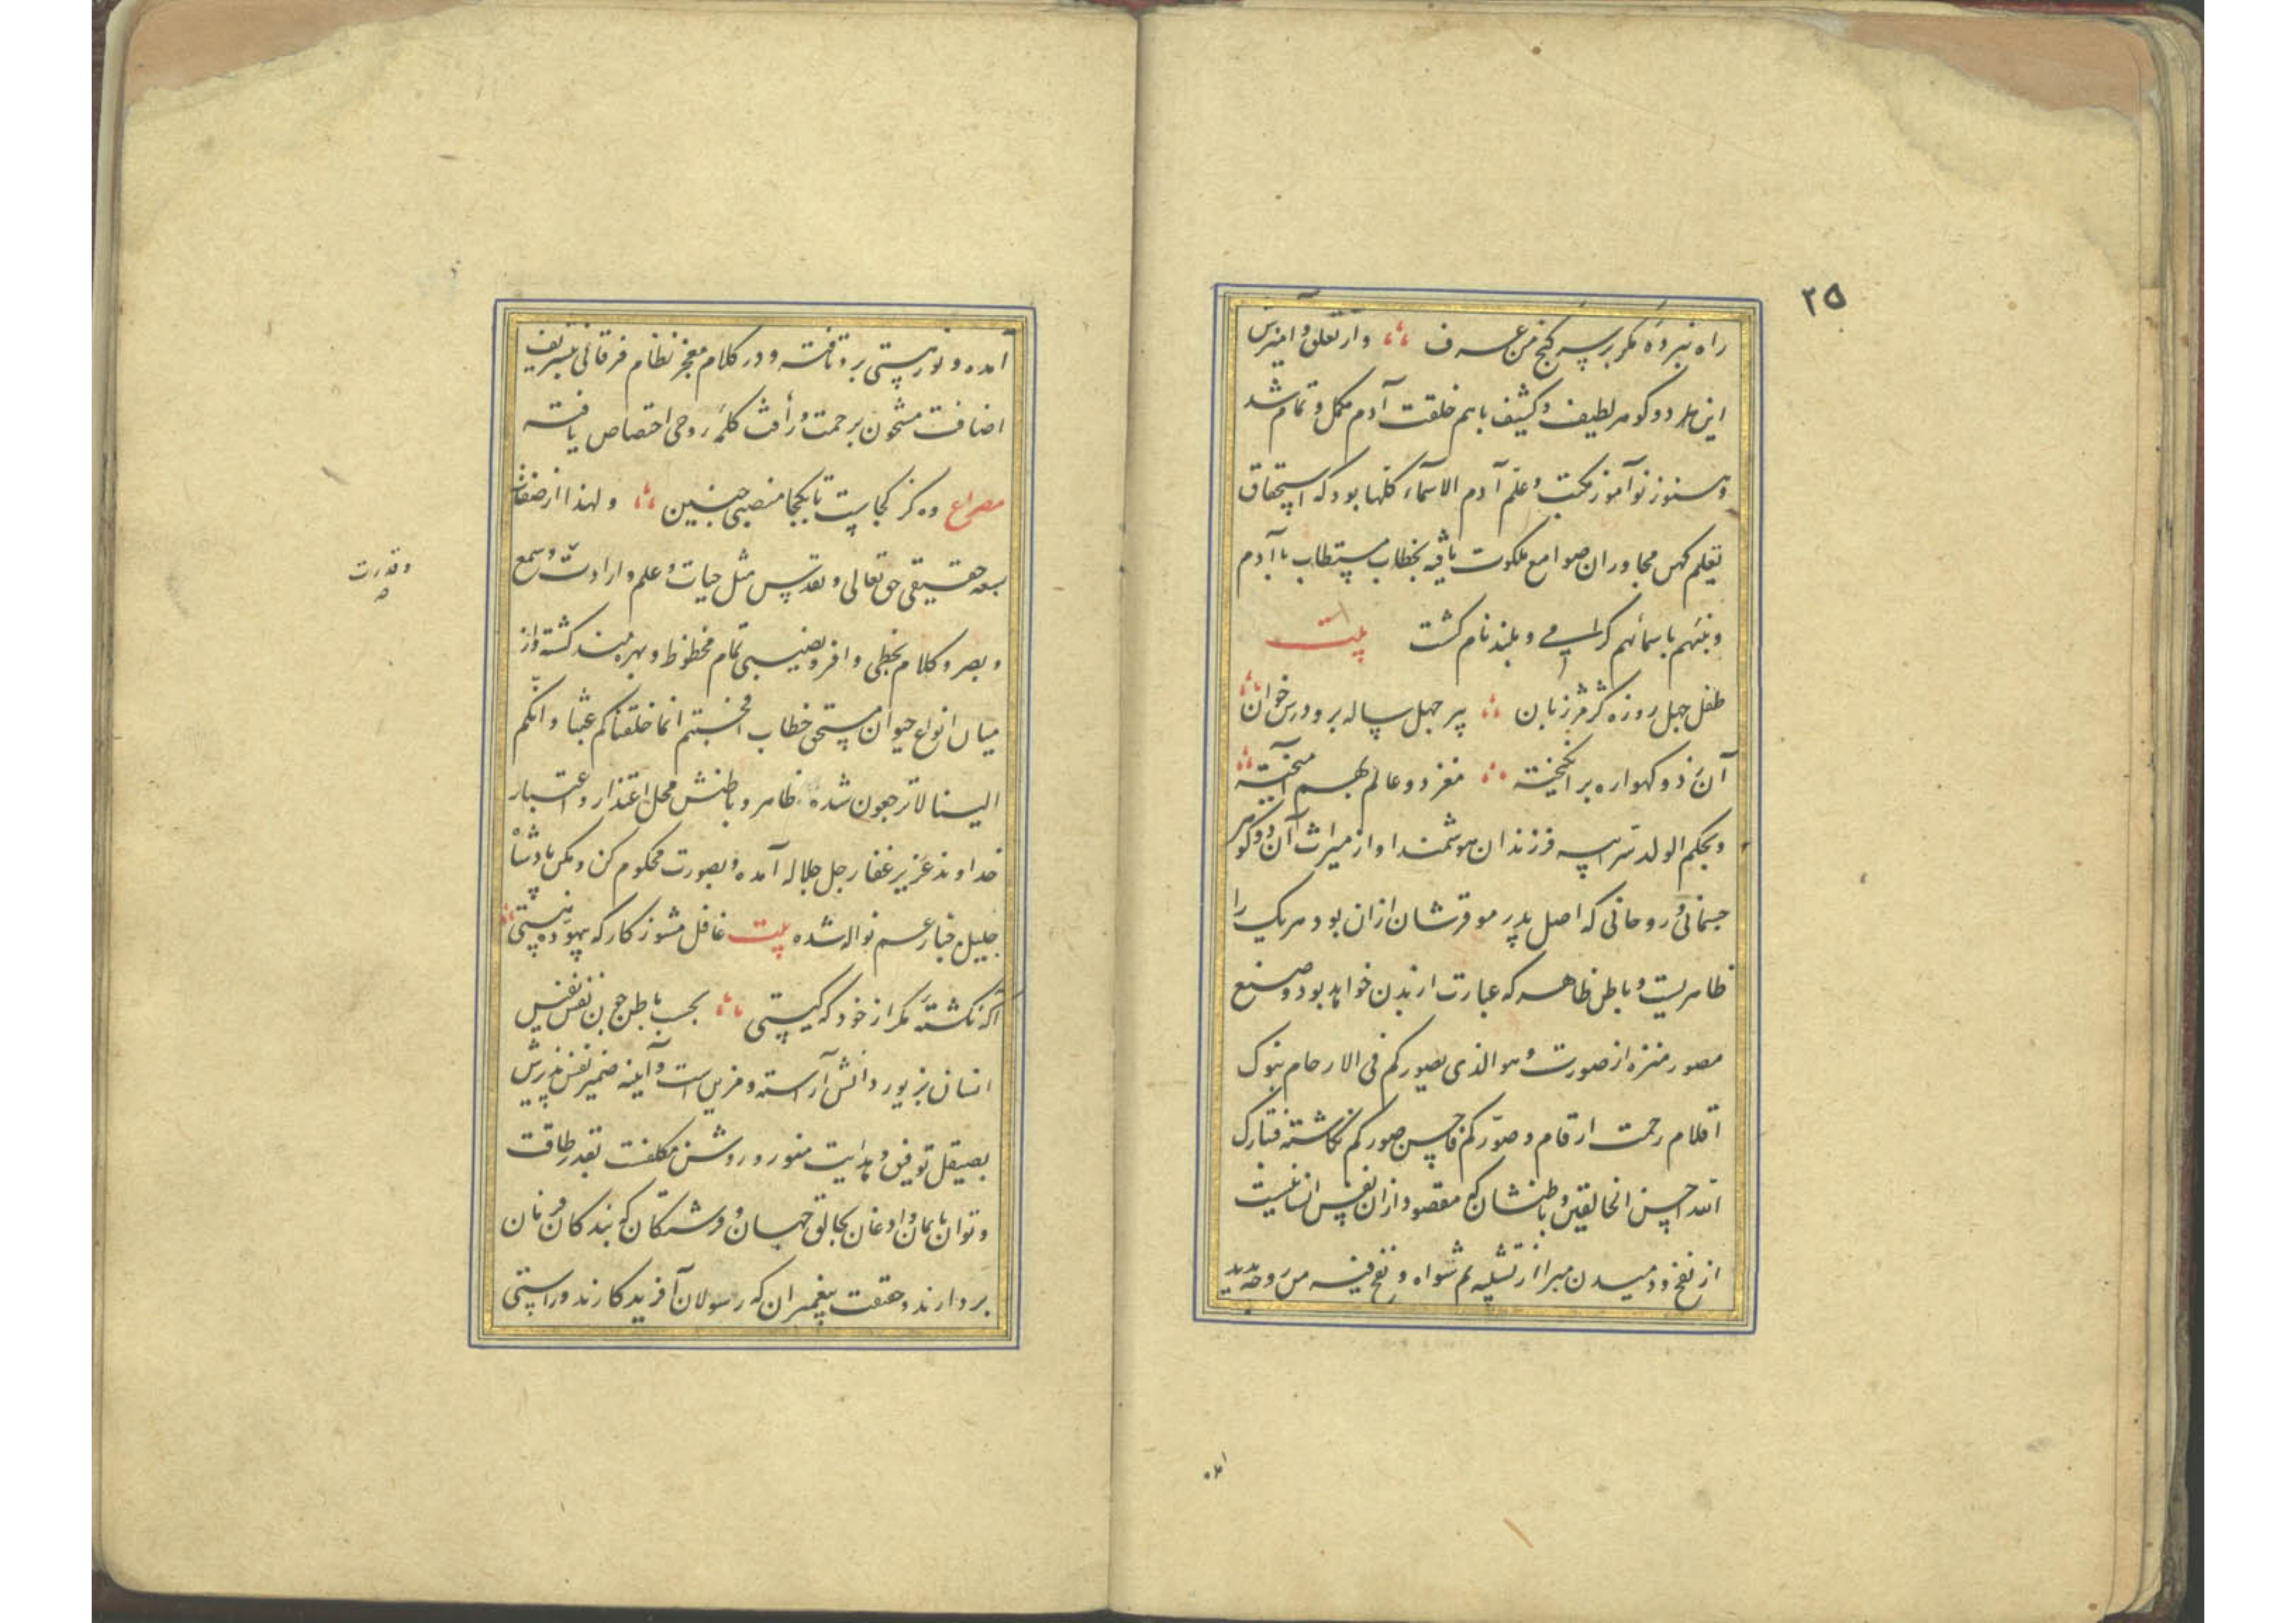 ۲۵
راه نبردهٔ مگر بر سر گنج من عرف و از تعلق و آمیزش
این هر دو گوهر لطیف و کثیف باهم خلقت آدم مکمل و تمام شد
و هنوز نوآموز مکتب و علم آدم الاسماء کلها بود که استحقاق
تعلیم کهن مجاوران صوامع ملکوت یافته بخطاب مستطاب یا آدم
و نبئهم باسمائهم گرامی و بلند نام گشت بیت
طفل چهل روزه کژمژ زبان پیر چهل ساله برو درس خوان
آن ز دو گهواره برانگیخته مغز دو عالم بهم آمیخته
و بحکم الولد سر ابیه فرزندان هوشمند او از میراث آن دو گوهر
جسمانی و روحانی که اصل پدر موقرشان ازان بود هر یک را
ظاهریست و باطن ظاهر که عبارت از بدن خواهد بود و صنع
مصور منزه از صورت و هو الذی یصورکم فی الارحام بنوک
اقلام رحمت ارقام و صوّرکم فاحسن صورکم نگاشته فتبارک
الله احسن الخالقین و باطنشان که مقصود ازان نفس انسانیست
از نفخ و دمیدن مبرا از تشبیه ثم سواه و نفخ فیه من روحه پدید
آمده
آمده و نور هستی برو تافته و در کلام معجز نظام فرقانی بتشریف
اضافت مشحون برحمت و رأفت کلمهٔ روحی اختصاص یافته
مصراع وه کز کجاست تا بکجا منصبی چنین و لهذا از صفات
سبعه حقیقی حق تعالی و تقدس مثل حیات و علم و ارادت و سمع
و قدرت
و بصر و کلام بحظی وافر و نصیبی تمام محظوظ و بهره‌مند گشته و از
میان انواع حیوان مستحق خطاب افحسبتم انما خلقناکم عبثا و انکم
الینا لا ترجعون شده ظاهر و باطنش محل اعتذار و اعتبار
خداوند عزیز غفار جل جلاله آمده و بصورت محکوم کن و مکن پادشاه
جلیل جبار عم نواله شده بیت غافل مشو ز کار که بیهوده نیستی
آگه نگشتهٔ مگر از خود که کیستی بحسب باطن چون نفس نفیس
انسان بزیور دانش آراسته و مزین است و آینه ضمیر نقش‌پذیرش
بصیقل توفیق و هدایت منور و روشن مکلفست بقدر طاقت
و توان بایمان و اذعان بخالق جهان و فرشتگان که بندگان فرمان
بردارند و حقیقت پیغمبران که رسولان آفریدگارند و راستی